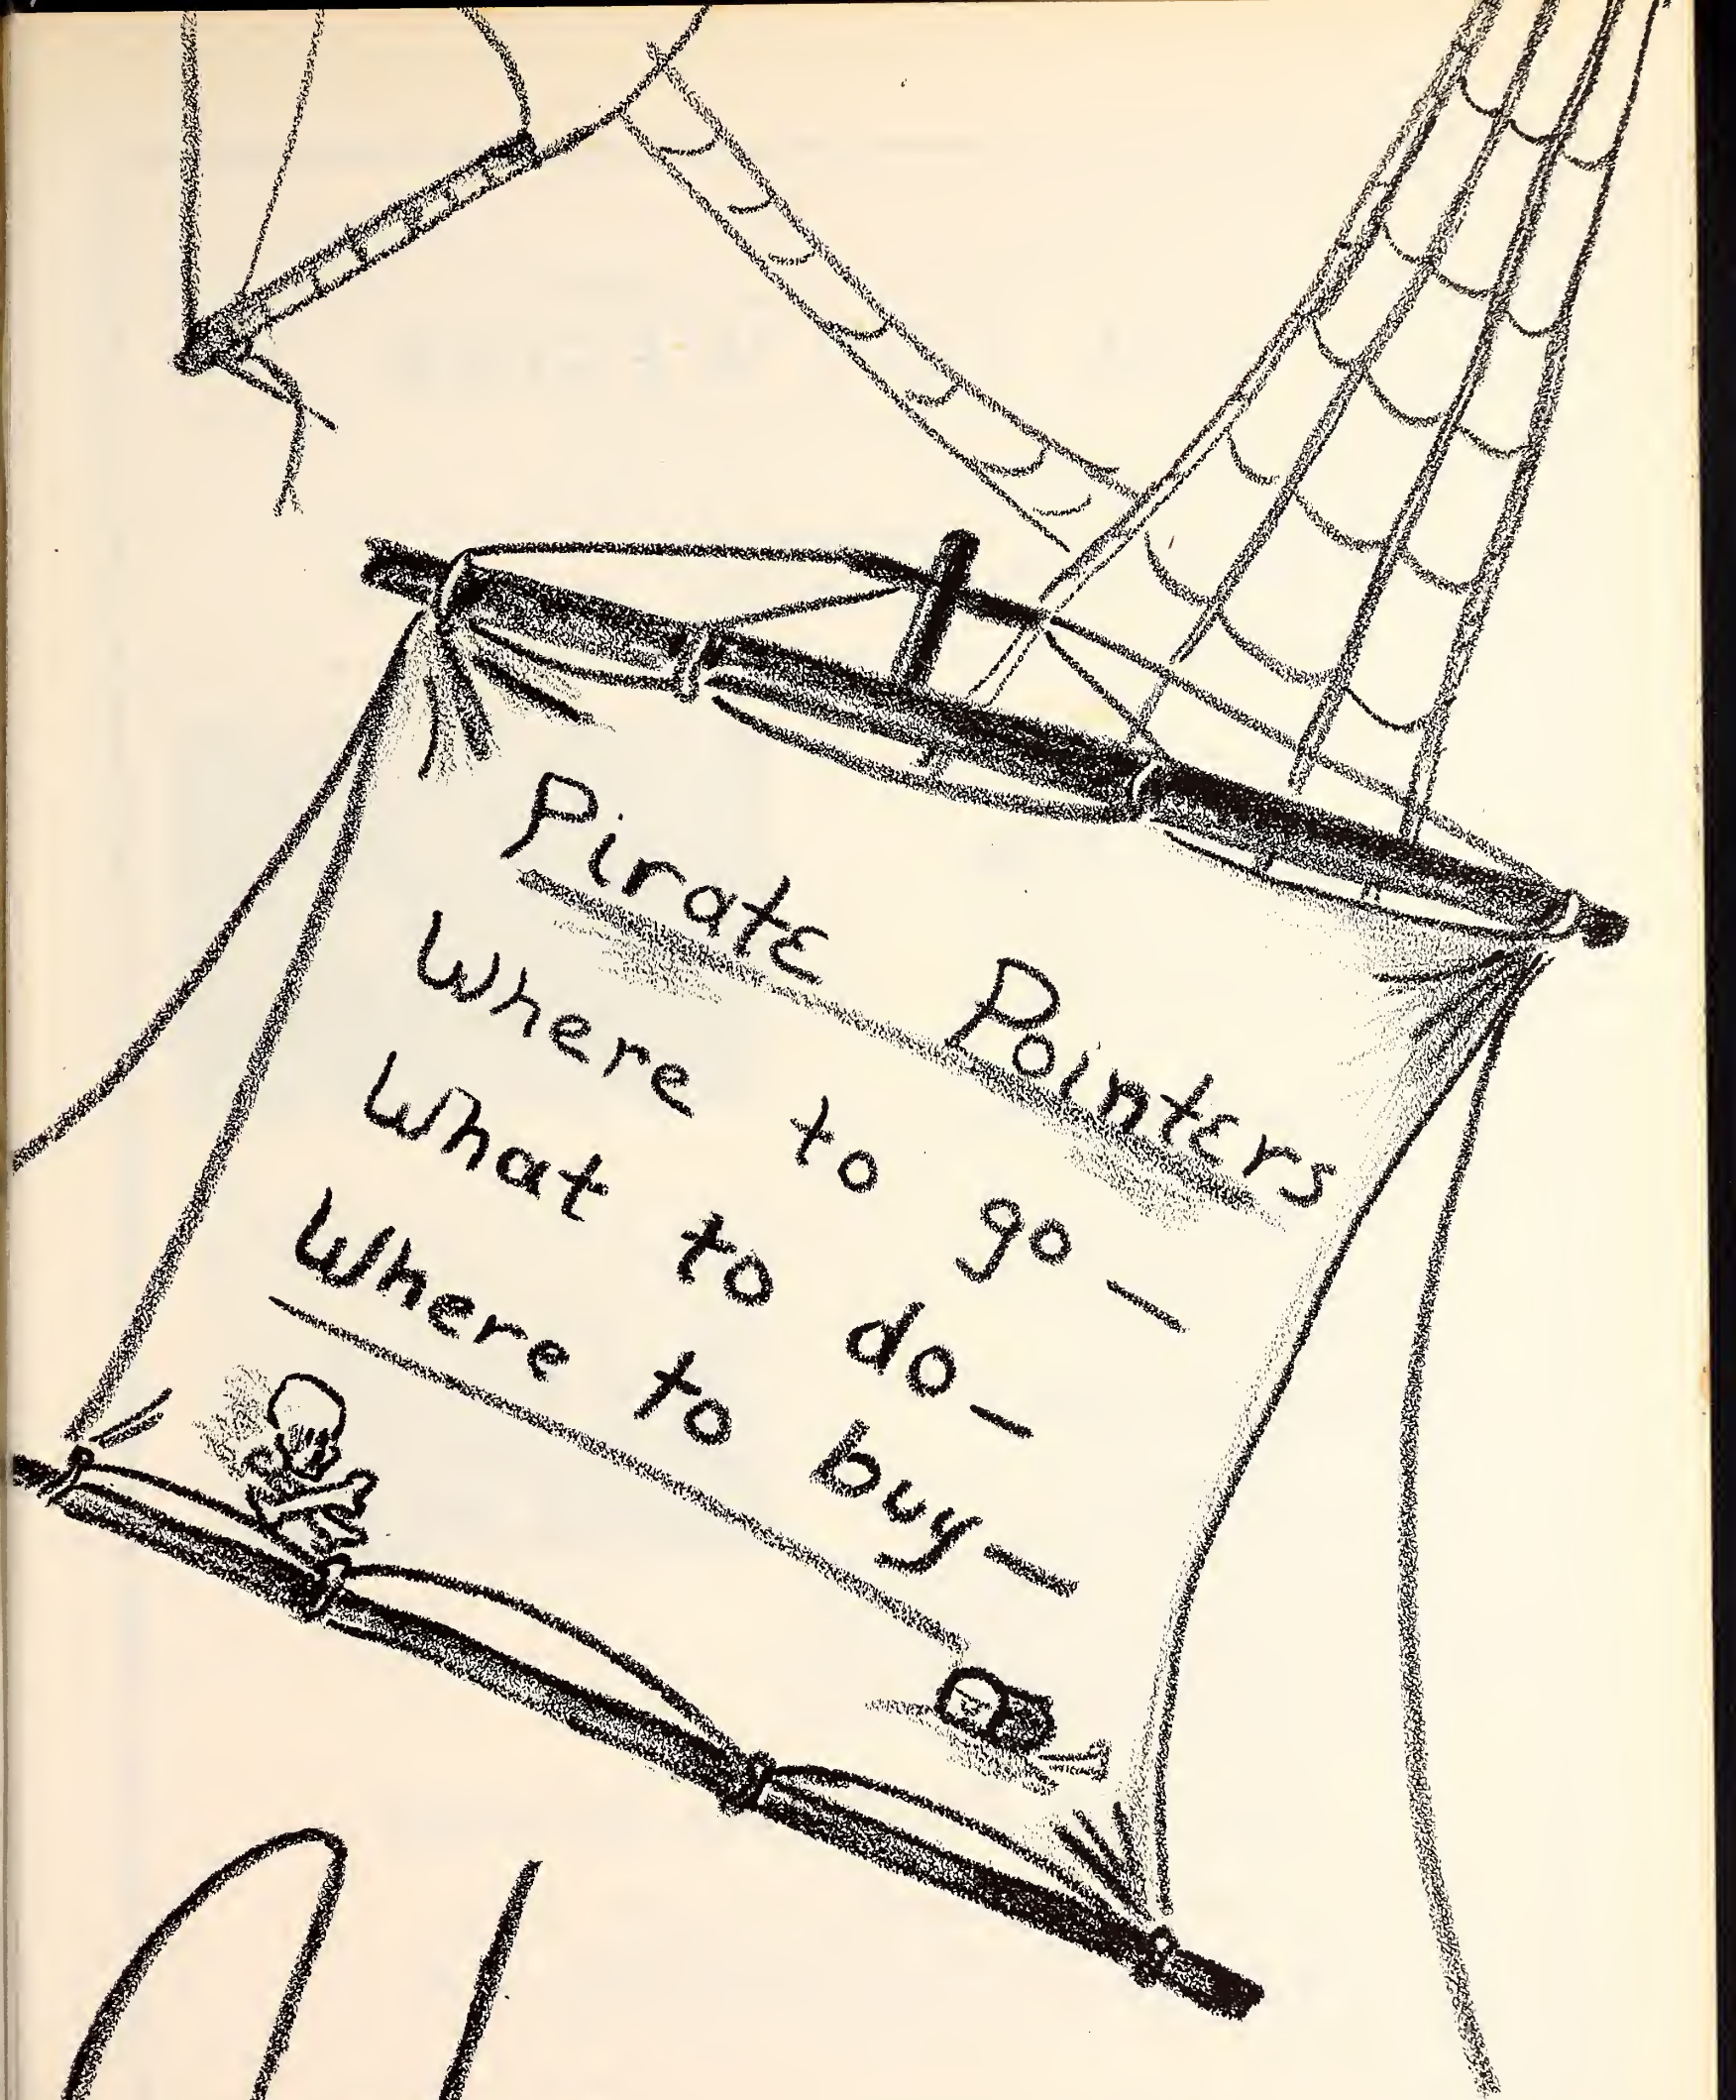 Pirate Pointers
Where to go—
What to do—
Where to buy—